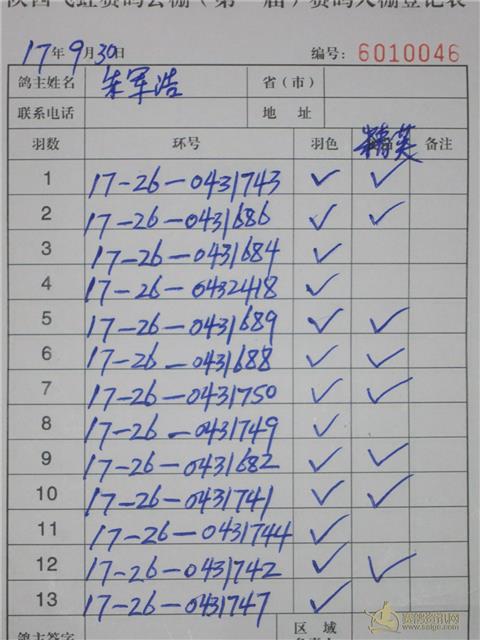 陕西 赛鸽公棚(第 届)赛鸽入棚登记表
17年9月30日 编号: 6010046
鸽主姓名 朱军浩 省(市)
联系电话 地 址
羽数 环号 羽色 精英 备注
1 17-26-0431743 ✓ ✓
2 17-26-0431686 ✓ ✓
3 17-26-0431684 ✓
4 17-26-0432418 ✓
5 17-26-0431689 ✓ ✓
6 17-26-0431688 ✓ ✓
7 17-26-0431750 ✓ ✓
8 17-26-0431749 ✓
9 17-26-0431682 ✓ ✓
10 17-26-0431741 ✓ ✓
11 17-26-0431744 ✓
12 17-26-0431742 ✓ ✓
13 17-26-0431747 ✓
鸽主签字 区 域
赛鸽资讯网
www.saige.com